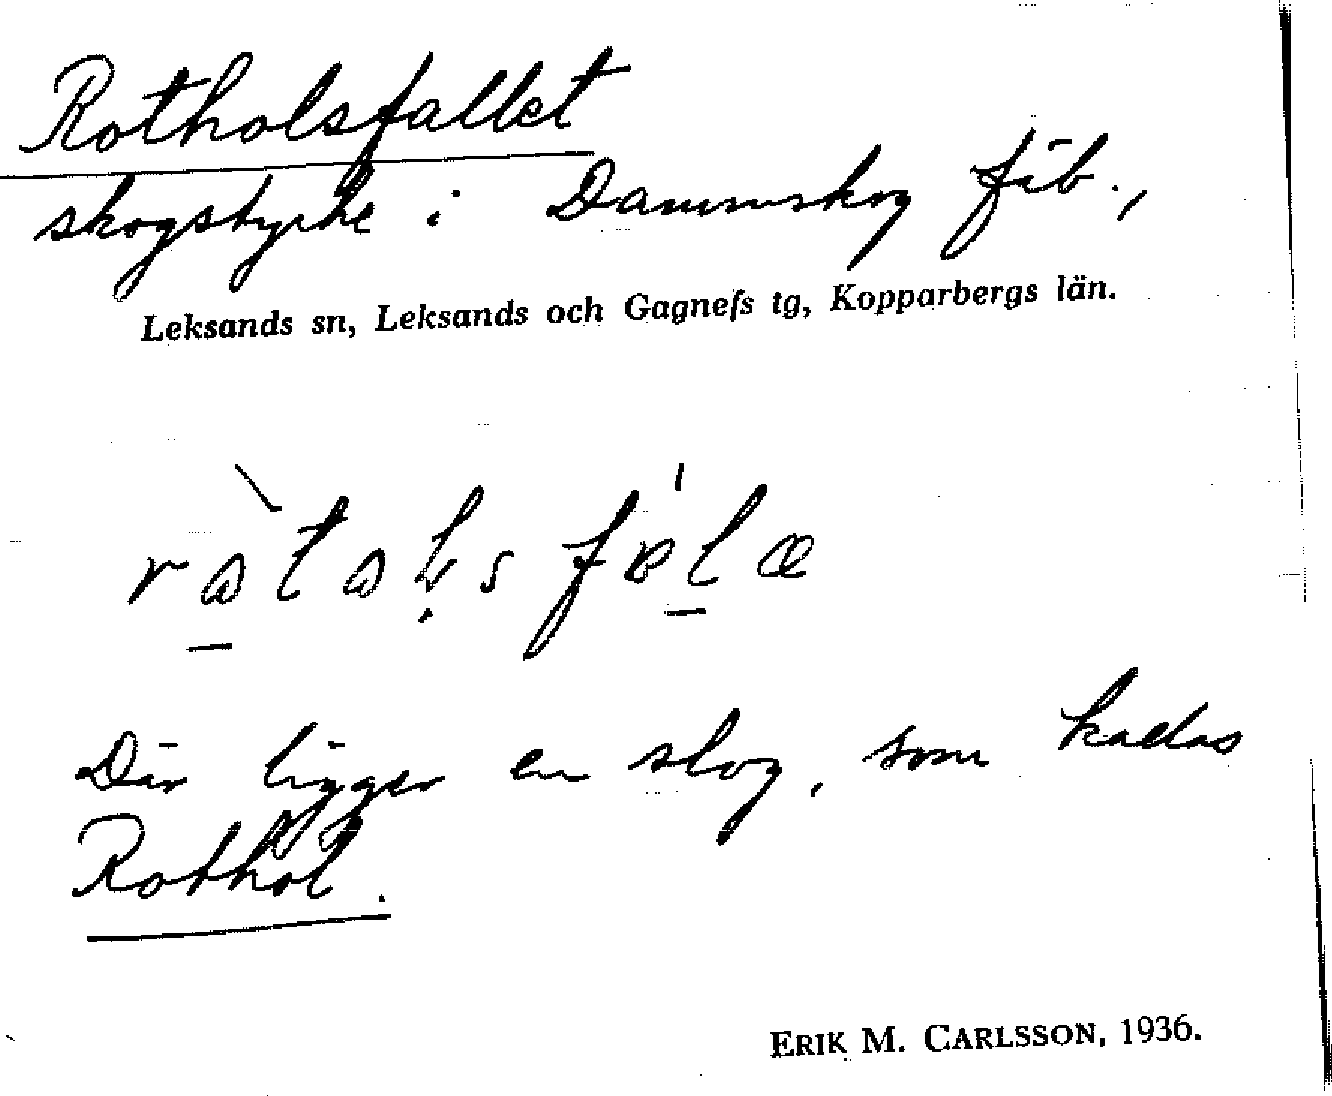 Rotholsfallet
skogstycke i Dammskog fäb.,
Leksands sn, Leksands och Gagnefs tg, Kopparbergs län.
Där ligger en slog, som kallas
Rothol.
ERIK M. CARLSSON, 1936.